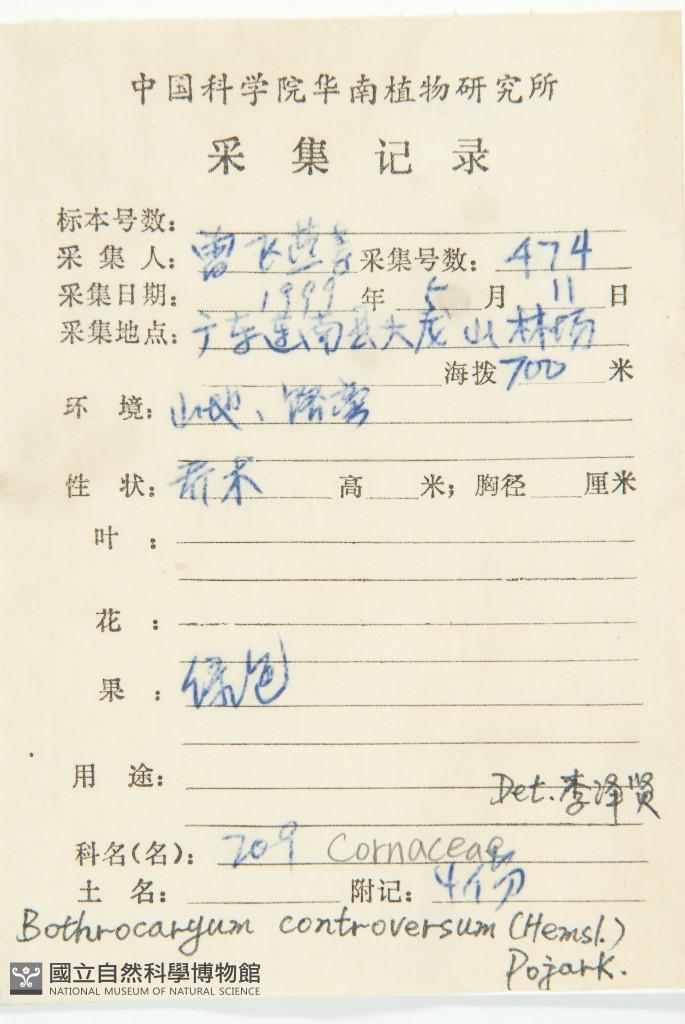 中国科学院华南植物研究所
采集记录
标本号数:
采集人: 曹飞燕 采集号数: 474
采集日期: 1999 年 5 月 11 日
采集地点: 广东连南县大龙山林场
海拨 700 米
环境: 山地、路旁
性状: 乔木 高 米; 胸径 厘米
叶:
花:
果: 绿色
用途:
Det. 李泽贤
科名(名): 209 Cornaceae
土名: 附记: 4份
Bothrocaryum controversum (Hemsl.)
Pojark.
國立自然科學博物館
NATIONAL MUSEUM OF NATURAL SCIENCE